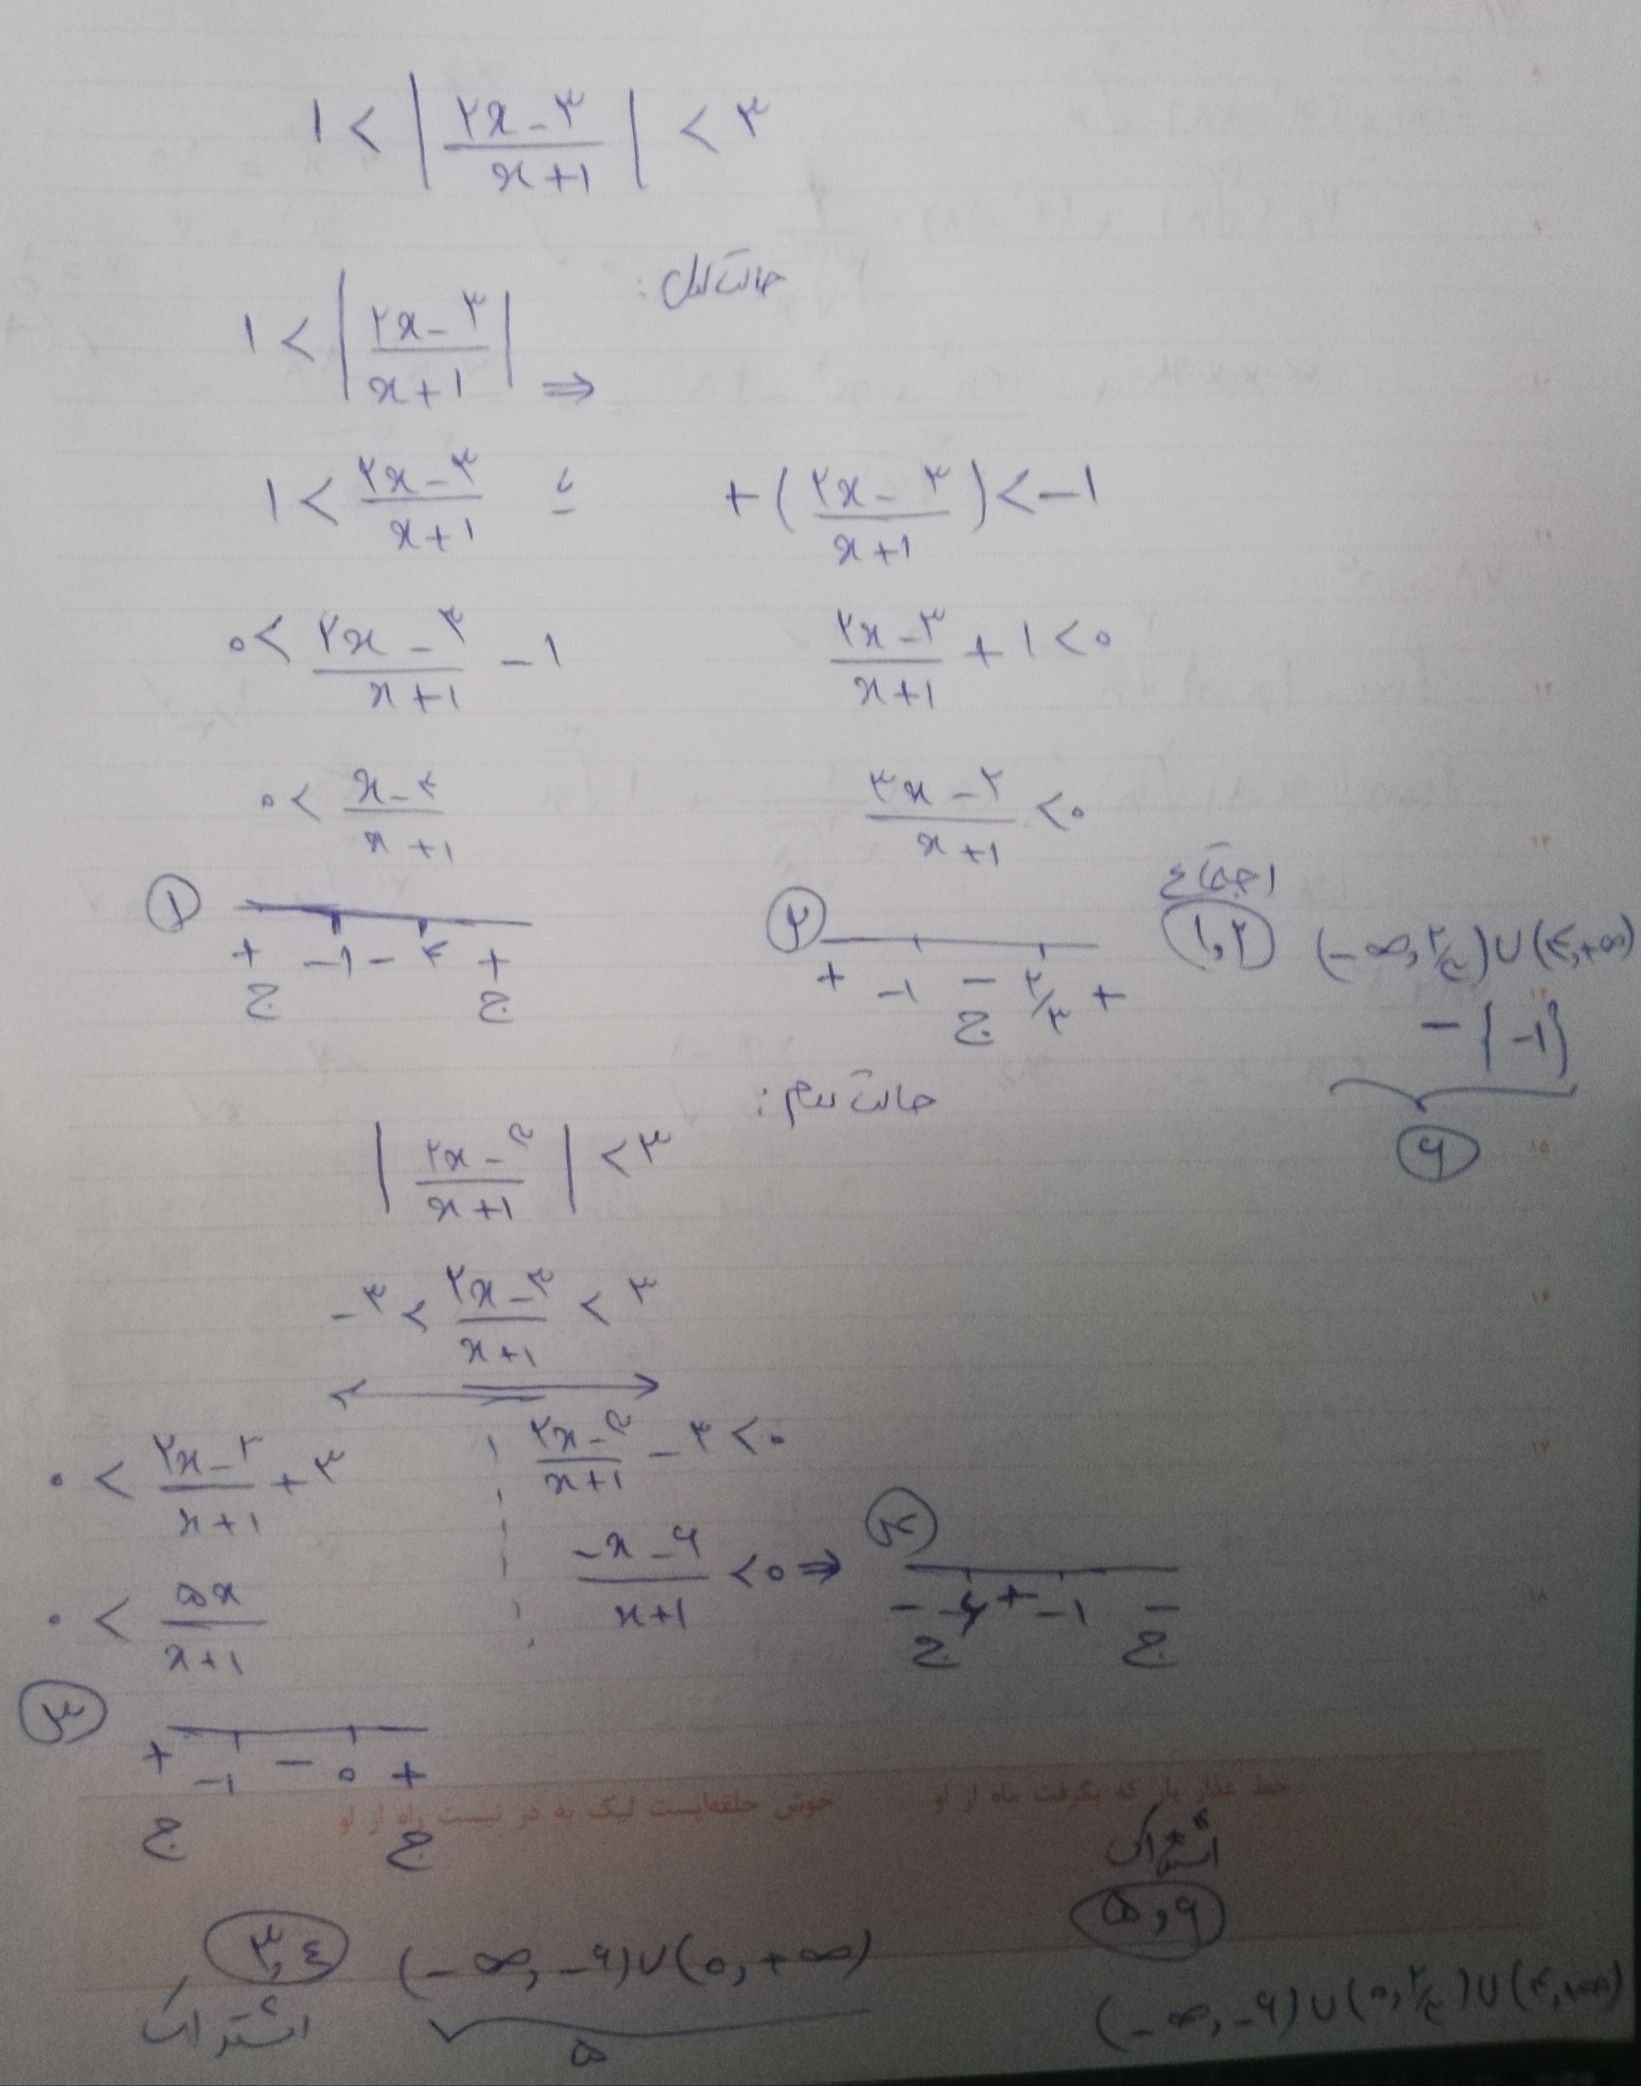 ۱ < | ۲x-۳ / x+۱ | < ۳
حالت اول :
۱ < | ۲x-۳ / x+۱ | ⇒
۱ < ۲x-۳ / x+۱ یا +( ۲x-۳ / x+۱ ) < -۱
۰ < ۲x-۳ / x+۱ - ۱ ۲x-۳ / x+۱ + ۱ < ۰
۰ < x-۴ / x+۱ ۳x-۲ / x+۱ < ۰
① + -۱ - ۴ +
ج ج
② + -۱ - ۲/۳ +
ج
اجتماع
۱,۲ (-∞, ۲/۳) ∪ (۴, +∞)
- {-۱}
۶
حالت دوم :
| ۲x-۳ / x+۱ | < ۳
-۳ < ۲x-۳ / x+۱ < ۳
۰ < ۲x-۳ / x+۱ + ۳ ۲x-۳ / x+۱ - ۳ < ۰
۰ < ۵x / x+۱ -x-۶ / x+۱ < ۰ ⇒
④ - -۶ + -۱ -
ج ج
③ + -۱ - ۰ +
ج ج
خط عذار یار که بگرفت ماه از او خوش حلقه‌ایست لیک به در نیست راه از او
۳,۴ (-∞, -۶) ∪ (۰, +∞)
اشتراک ۵
اشتراک
۵,۶
(-∞, -۶) ∪ (۰, ۲/۳) ∪ (۴, +∞)
۸
۹
۱۰
۱۱
۱۲
۱۳
۱۴
۱۵
۱۶
۱۷
۱۸